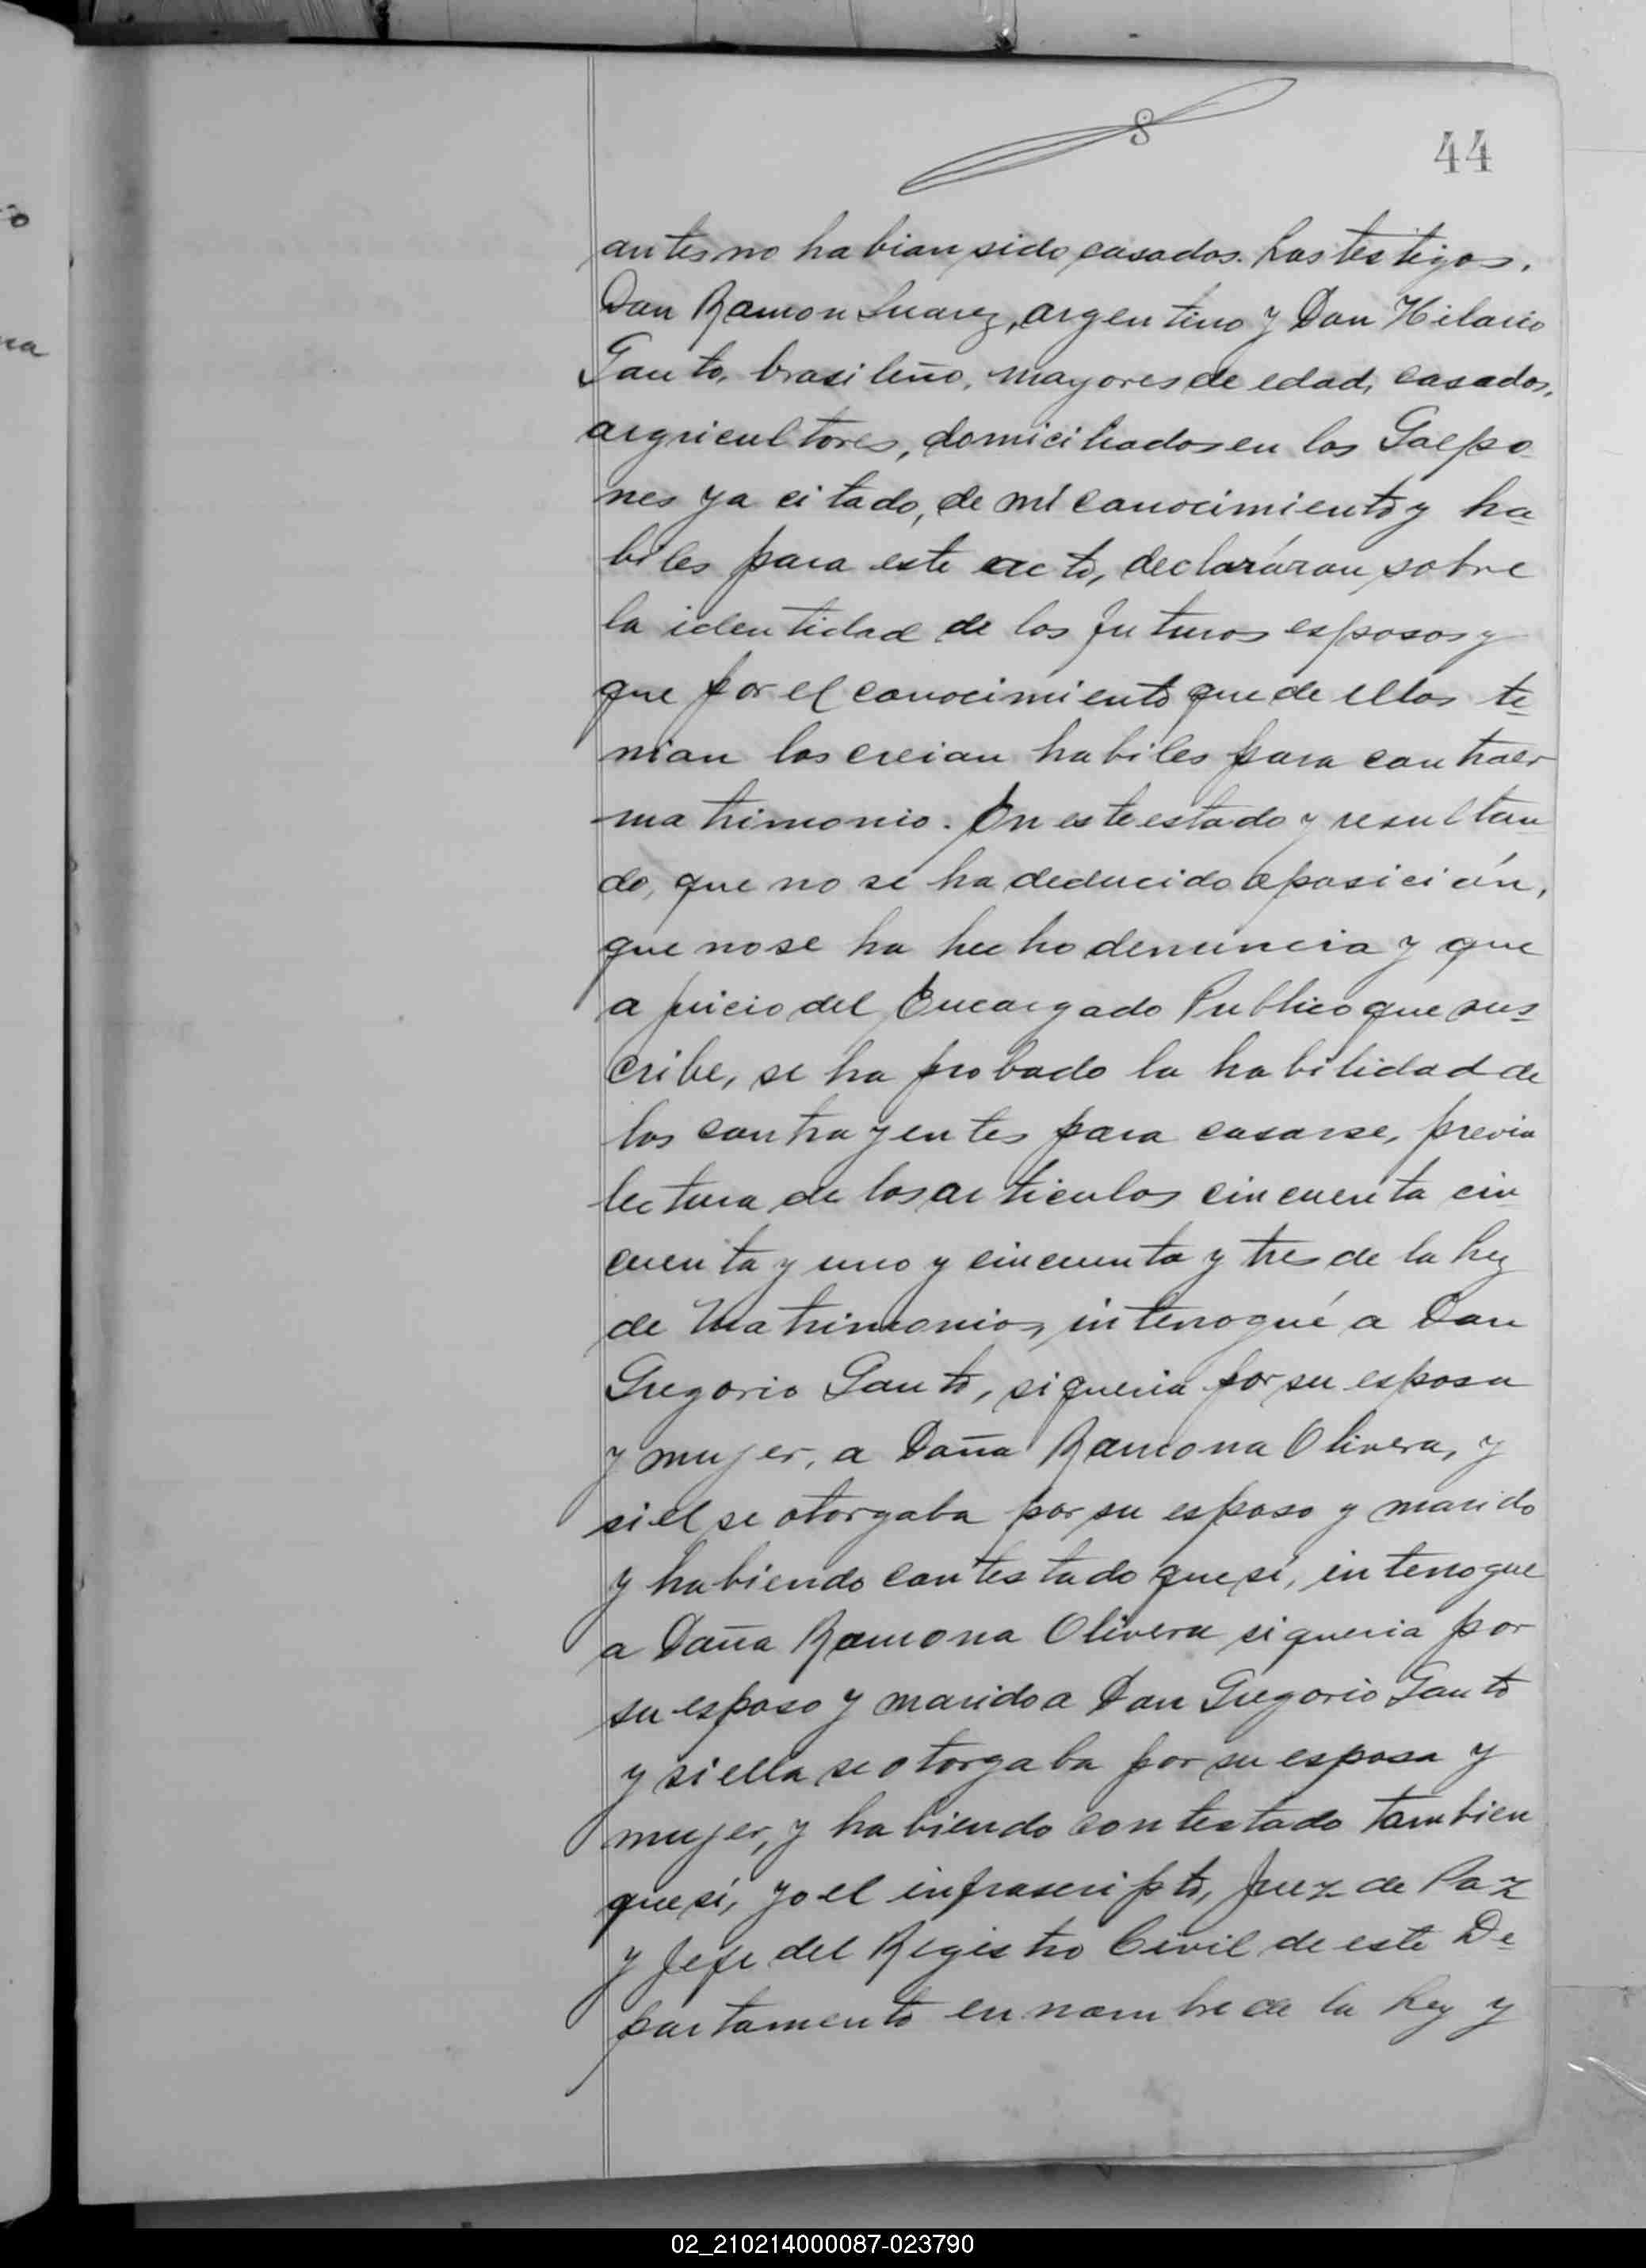 44
antes no habian sido casados. Los testigos,
Don Ramon Suarez, argentino y Don Hilario
Gauto, brasileño, mayores de edad, casados,
argricultores, domiciliados en los Galpo
nes ya citado, de mi conocimiento y ha
biles para este acto, declaráran sobre
la identidad de los futuros esposos y
que por el conocimiento que de ellos te
nian los creian habiles para contraer
matrimonio. En este estado y resultan
do, que no se ha deducido oposición,
que no se ha hecho denuncia y que
a juicio del Encargado Publico que sus
cribe, se ha probado la habilidad de
los contrayentes para casarse, previa
lectura de los articulos cincuenta cin
cuenta y uno y cincuenta y tres de la Ley
de Matrimonios, interrogué a Don
Gregorio Gauto, si queria por su esposa
y mujer, a Doña Ramona Olivera, y
si el se otorgaba por su esposo y marido
y habiendo contestado que sí, interrogue
a Doña Ramona Olivera si queria por
su esposo y marido a Don Gregorio Gauto
y si ella se otorgaba por su esposa y
mujer, y habiendo contestado tambien
que sí, yo el infrascripto, Juez de Paz
y Jefe del Registro Civil de este De
partamento en nombre de la Ley y
02_210214000087-023790